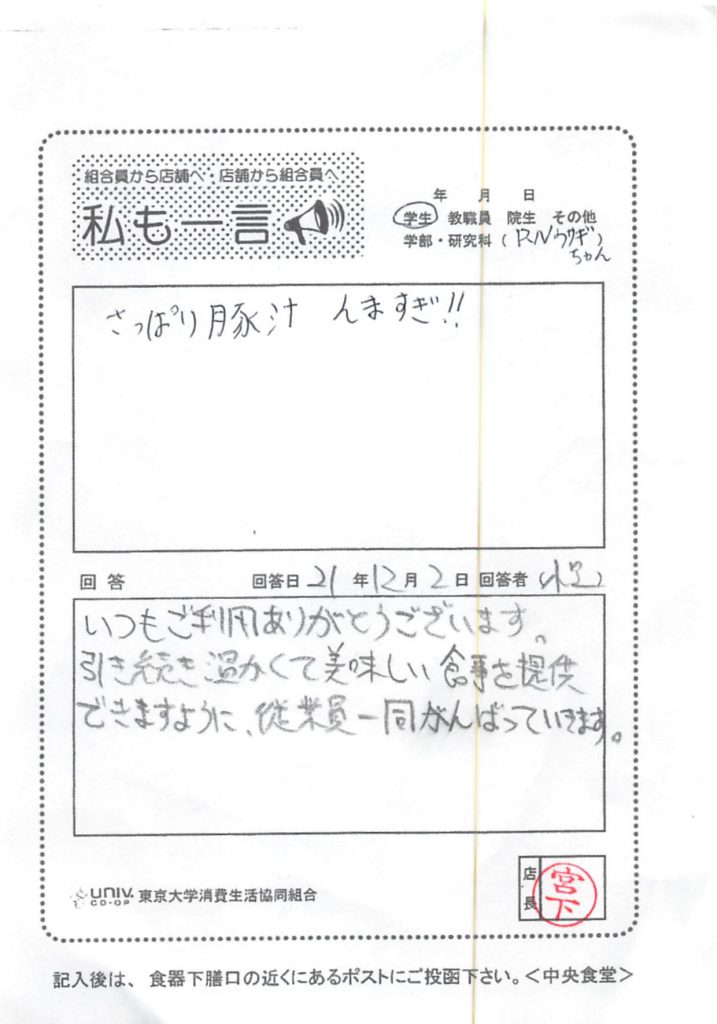 組合員から店舗へ・店舗から組合員へ
私も一言
年 月 日
学生 教職員 院生 その他
学部・研究科 (RNウサギ)
ちゃん
さっぱり豚汁 んますぎ!!
回答 回答日 21 年 12 月 2 日 回答者
いつもご利用ありがとうございます。
引き続き温かくて美味しい食事を提供
できますように、従業員一同がんばっていきます。
店長
宮下
UNIV. CO-OP 東京大学消費生活協同組合
記入後は、食器下膳口の近くにあるポストにご投函下さい。<中央食堂>